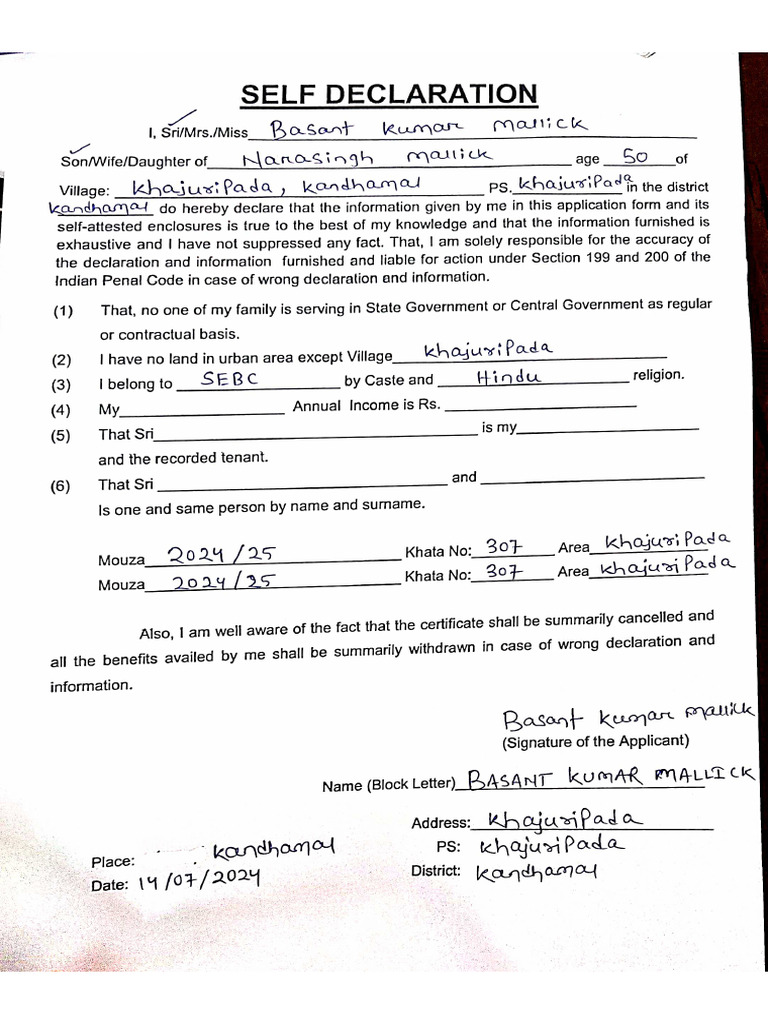 SELF DECLARATION
I, Sri/Mrs./Miss Basant Kumar Mallick
Son/Wife/Daughter of Narasingh Mallick age 50 of
Village: Khajuripada, Kandhamal PS. Khajuripada in the district
Kandhamal do hereby declare that the information given by me in this application form and its
self-attested enclosures is true to the best of my knowledge and that the information furnished is
exhaustive and I have not suppressed any fact. That, I am solely responsible for the accuracy of
the declaration and information furnished and liable for action under Section 199 and 200 of the
Indian Penal Code in case of wrong declaration and information.
(1) That, no one of my family is serving in State Government or Central Government as regular
or contractual basis.
(2) I have no land in urban area except Village Khajuripada
(3) I belong to SEBC by Caste and Hindu religion.
(4) My Annual Income is Rs.
(5) That Sri is my
and the recorded tenant.
(6) That Sri and
Is one and same person by name and surname.
Mouza 2024/25 Khata No: 307 Area Khajuripada
Mouza 2024/25 Khata No: 307 Area Khajuripada
Also, I am well aware of the fact that the certificate shall be summarily cancelled and
all the benefits availed by me shall be summarily withdrawn in case of wrong declaration and
information.
Basant Kumar Mallick
(Signature of the Applicant)
Name (Block Letter) BASANT KUMAR MALLICK
Address: Khajuripada
Place: Kandhamal PS: Khajuripada
Date: 14/07/2024 District: Kandhamal